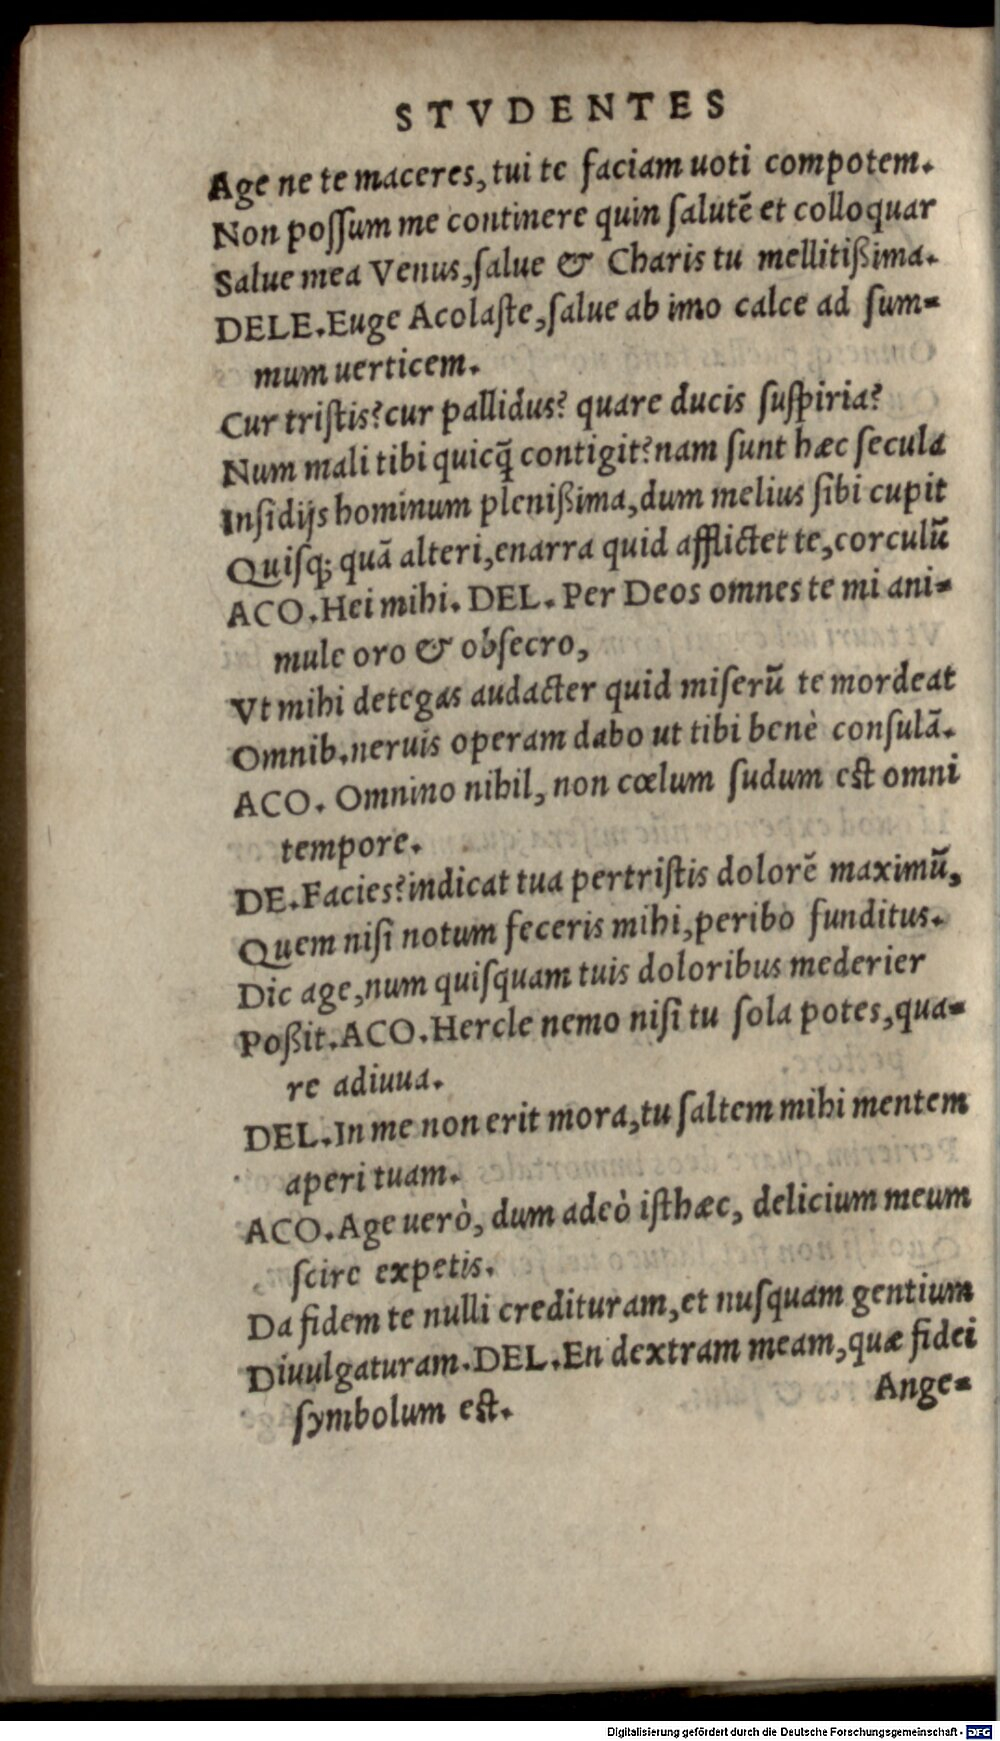 STVDENTES
Age ne te maceres, tui te faciam uoti compotem.
Non poſſum me continere quin ſalutē et colloquar
Salue mea Venus, ſalue & Charis tu mellitißima.
DELE. Euge Acolaſte, ſalue ab imo calce ad ſum-
mum uerticem.
Cur triſtis? cur pallidus? quare ducis ſuſpiria?
Num mali tibi quicq̃ contigit? nam ſunt hæc ſecula
Inſidijs hominum plenißima, dum melius ſibi cupit
Quiſq; quā alteri, enarra quid afflictet te, corculū
ACO. Hei mihi. DEL. Per Deos omnes te mi ani-
mule oro & obſecro,
Vt mihi detegas audacter quid miſerū te mordeat
Omnib. neruis operam dabo ut tibi benè conſulā.
ACO. Omnino nihil, non cœlum ſudum eſt omni
tempore.
DE. Facies? indicat tua pertriſtis dolorē maximū,
Quem niſi notum feceris mihi, peribo funditus.
Dic age, num quiſquam tuis doloribus mederier
Poßit. ACO. Hercle nemo niſi tu ſola potes, qua-
re adiuua.
DEL. In me non erit mora, tu ſaltem mihi mentem
aperi tuam.
ACO. Age uerò, dum adeò iſthæc, delicium meum
ſcire expetis.
Da fidem te nulli credituram, et nuſquam gentium
Diuulgaturam. DEL. En dextram meam, quæ fidei
ſymbolum eſt.
Ange-
Digitalisierung gefördert durch die Deutsche Forschungsgemeinschaft - DFG